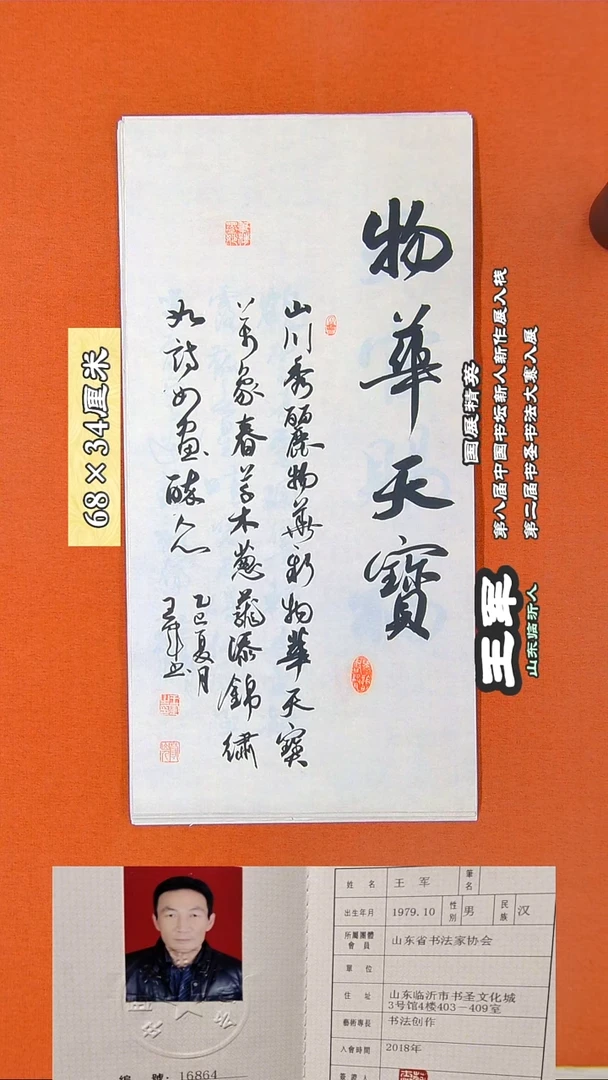 物華天寶
山川秀麗物華新物華天寶
萬象春草木蔥蘢添錦繡
如詩如畫醉人心
乙巳夏月
王军书
68×34厘米
国展精英
第八届中国书坛新人新作展入展
第二届书圣书法大赛入展
王军
山东临沂人
姓名 王军 筆名
出生年月 1979.10 性別 男 民族 汉
所屬團體會員 山东省书法家协会
單位
住址 山东临沂市书圣文化城
3号馆4楼403－409室
藝術專長 书法创作
入會時間 2018年
簽證人
編號：16864